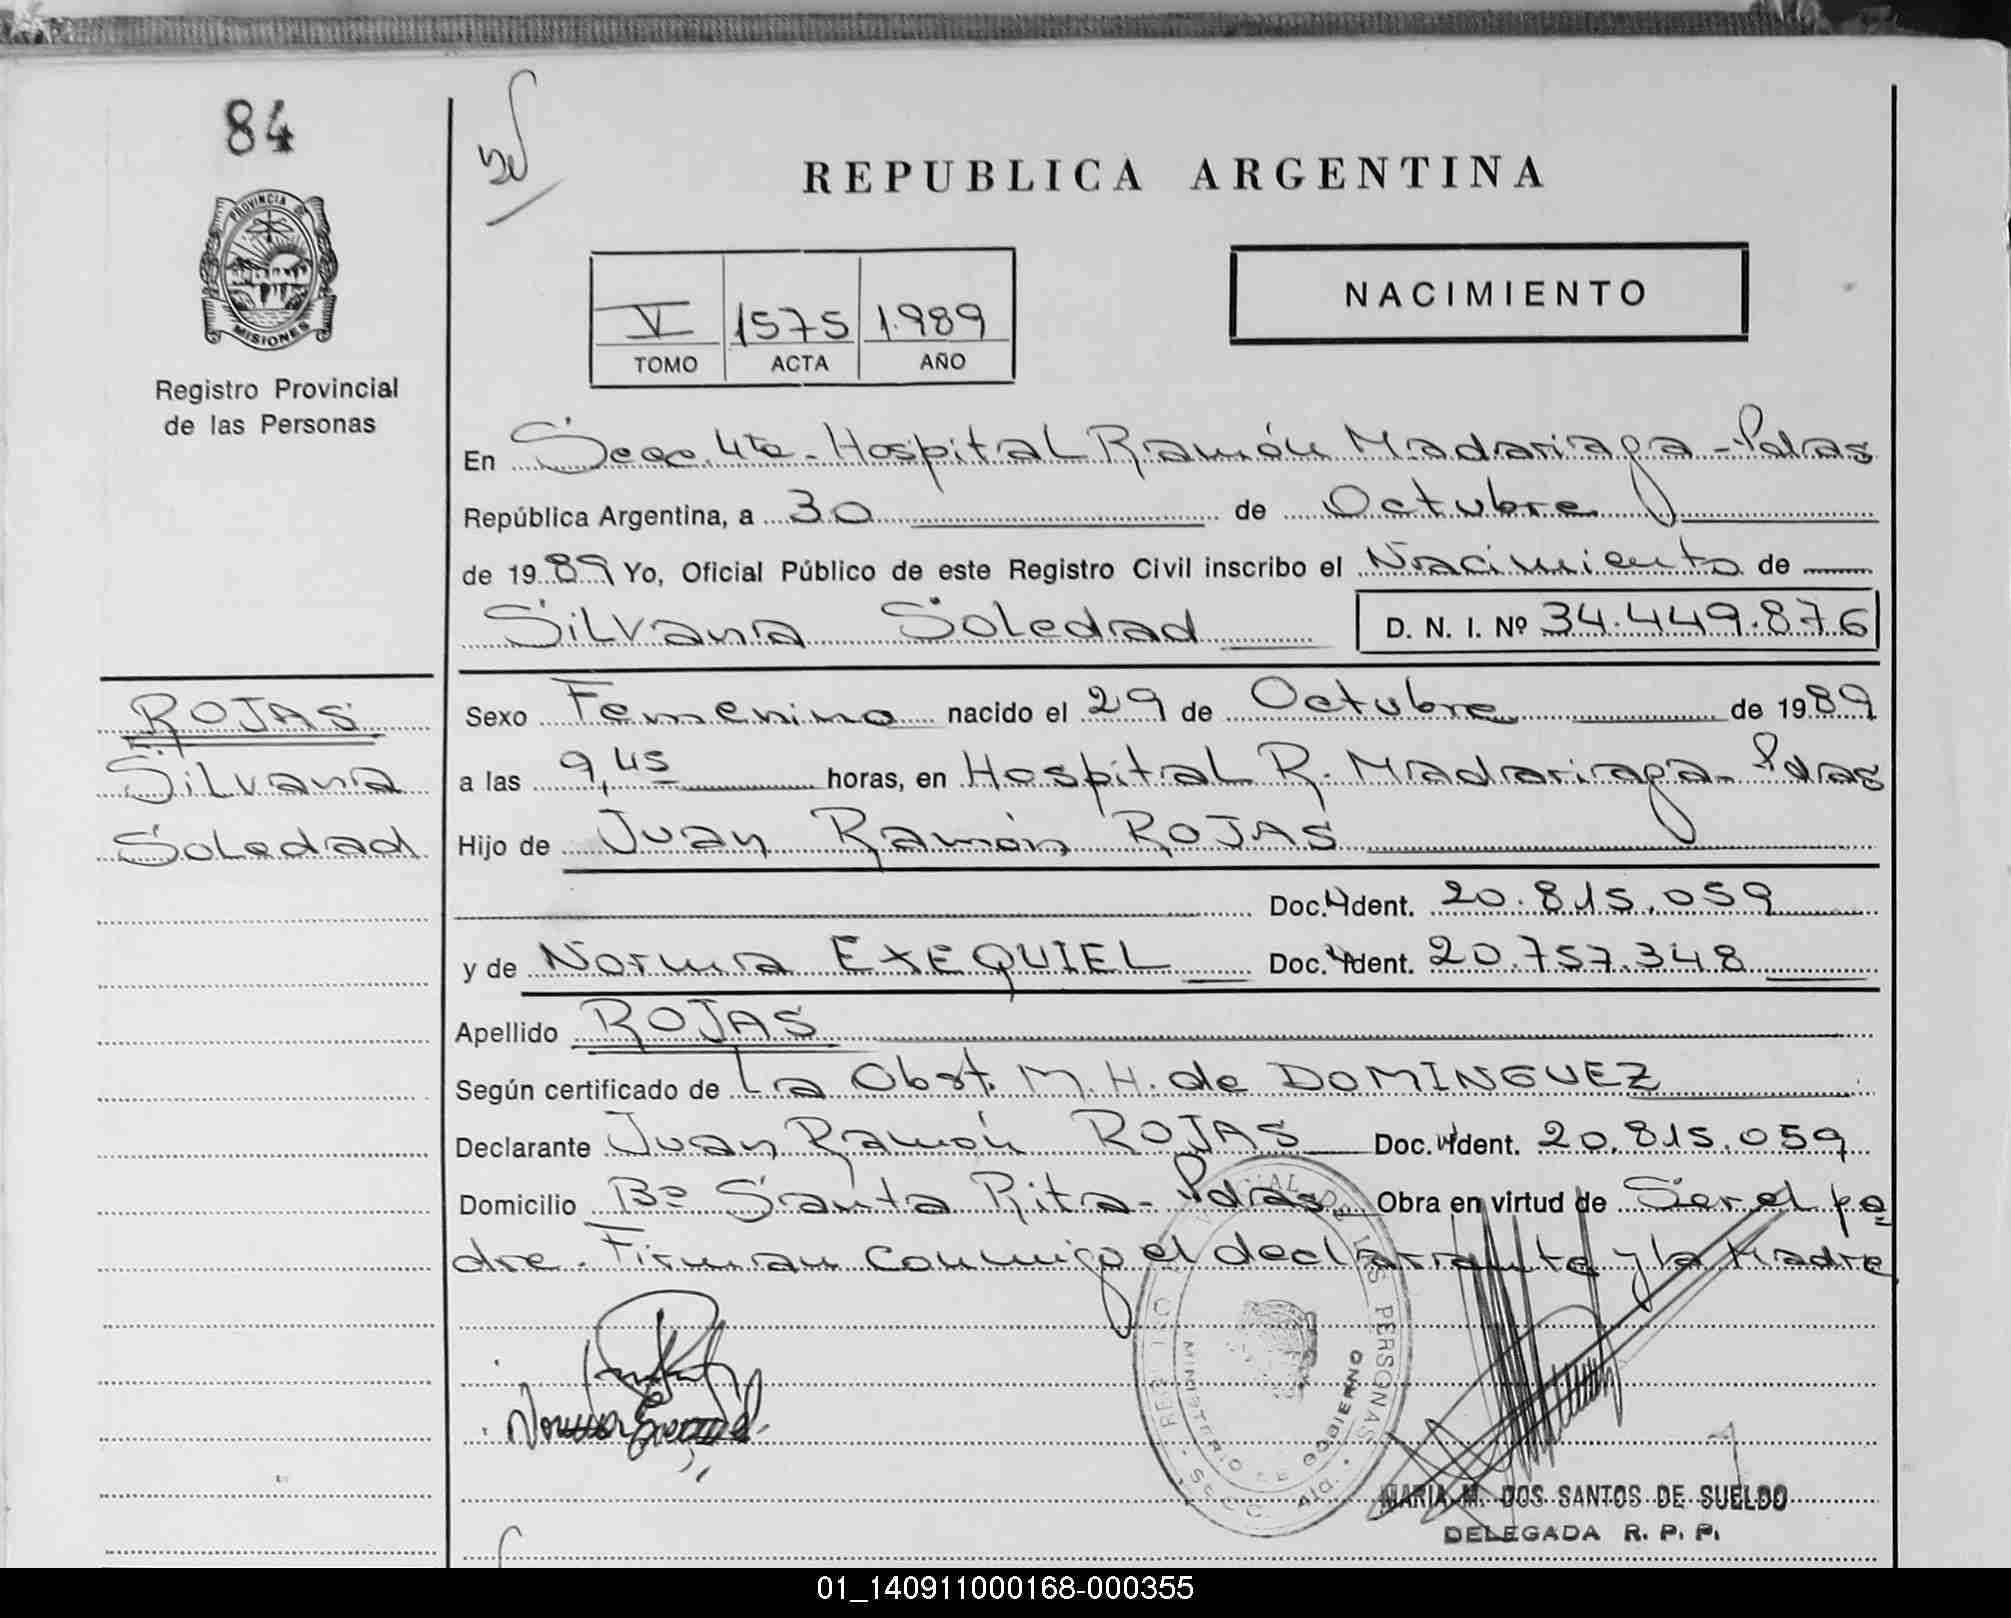 84
PROVINCIA DE
MISIONES
Registro Provincial
de las Personas
REPUBLICA ARGENTINA
V 1575 1.989
TOMO ACTA AÑO
NACIMIENTO
En Secc. 4ta - Hospital Ramón Madariaga - Pdas
República Argentina, a 30 de Octubre
de 1989 Yo, Oficial Público de este Registro Civil inscribo el Nacimiento de
Silvana Soledad D. N. I. Nº 34.449.876
ROJAS
Silvana
Soledad
Sexo Femenino nacido el 29 de Octubre de 1989
a las 9,45 horas, en Hospital R. Madariaga - Pdas
Hijo de Juan Ramón ROJAS
Doc. Ident. 20.815.059
y de Norma EXEQUIEL Doc. Ident. 20.757.348
Apellido ROJAS
Según certificado de La Obst. M. H. de DOMINGUEZ
Declarante Juan Ramón ROJAS Doc. Ident. 20.815.059
Domicilio Bº Santa Rita - Pdas Obra en virtud de Ser el pa
dre. Firman conmigo el declarante y la Madre
MINISTERIO DE GOBIERNO
MARIA M. DOS SANTOS DE SUELDO
DELEGADA R. P. P.
01_140911000168-000355